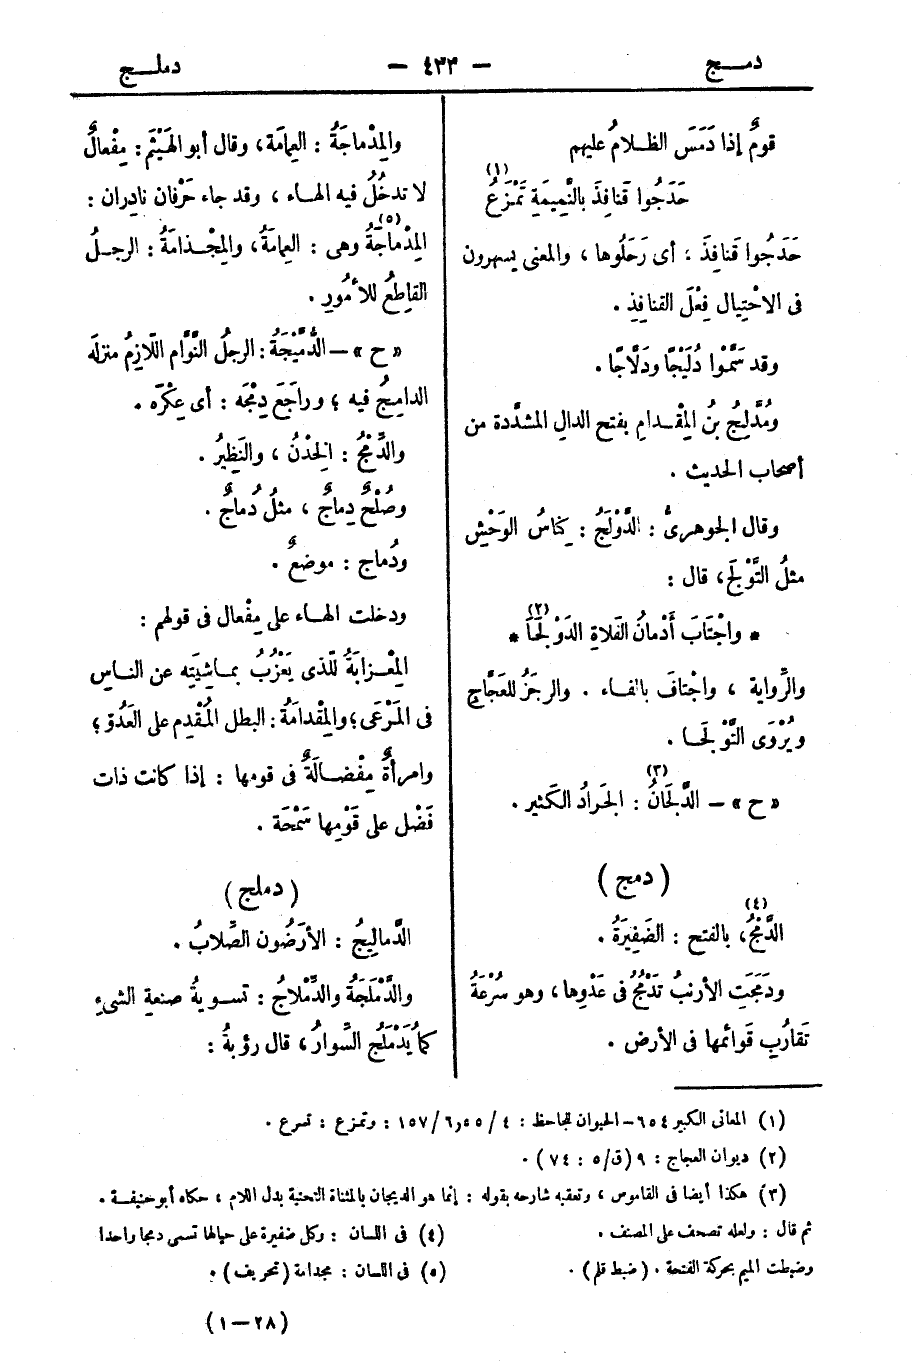 دمـــج
— ٤٣٣ —
دملـــج
قومٌ إذا دَمَسَ الظــلامُ عليهم
حَدَجُوا قَنافِذَ بالنَّمِيمَةِ تَمْزَعُ (١)
حَدَجُوا قَنافِذَ ، أى رَحَلُوها ، والمعنى يسهرون
فى الاحْتِيال فِعْلَ القنافِذِ .
وقد سَمَّوْا دُلَيْجًا ودَلّاجًا .
ومُدَّلِجُ بنُ المِقْــدامِ بفتح الدالِ المشدَّدة من
أصحاب الحديث .
وقال الجوهرىُّ : الدَّوْلَجُ : كِناسُ الوَحْشِ
مثلُ التَّوْلَجِ ، قال :
* واجْتَابَ أُدْمانُ الفَلاةِ الدَوْلَجَا (٢) *
والرِّواية ، واجْتافَ بالفــاء . والرجَزُ للعَجّاجِ
ويُرْوَى التَّوْلَجَــا .
« ح » – الدَّلَجَانُ (٣) : الجَرادُ الكَثير .
( دمج )
الدَّمْجُ (٤) ، بالفتح : الضَفِيرَةُ .
ودَمَجَتِ الأرنبُ تَدْمُجُ فى عَدْوِها ، وهو سُرْعَةُ
تَقارُبِ قَوائمها فى الأرض .
والمِدْماجَةُ : العِمامَة ، وقال أبو الهَيْثَم : مِفْعالٌ
لا تدخُلُ فيه الهــاء ، وقد جاء حَرْفان نادِران :
المِدْماجَةُ (٥) وهى : العِمامَةُ ، والمِجْــذامَةُ : الرجــلُ
القاطعُ للأُمُورِ .
« ح » – الدُّمَّيْجَةُ : الرجلُ النَّوّام اللَّازِمُ منزلَه
الدامِجُ فيه ؛ وراجَعَ دِمْجَه : أى عِكْرَه .
والدِّمْجُ : الخِدْنُ ، والنَظِيرُ .
وصُلْحٌ دِماجٌ ، مثلُ دُماجٌ .
ودُماج : موضعٌ .
ودخلت الهــاء على مِفْعال فى قولهم :
المِعْــزابَةُ للّذى يَعْزُبُ بمــاشِيَتِه عن النــاس
فى المَرْعَى ؛ والمِقْدامَةُ : البطل المُقْدِم على العَدُوّ ؛
وامرأةٌ مِفْضــالَةٌ فى قومها : إذا كانت ذات
فَضْل على قَوْمِها سَمْحَة .
( دملج )
الدَّماليجُ : الأَرَضُون الصِّلابُ .
والدَّمْلَجَةُ والدِّمْلاجُ : تســويةُ صنعةِ الشىءِ
كما يُدَمْلَج السِّوارُ ، قال رؤبةُ :
(١) المعانى الكبير ٦٥٤ – الحيوان للجاحظ : ٤ / ٥٥ و ٦ / ١٥٧ : وتمزع : تسرع .
(٢) ديوان العجاج : ٩ ( ق/٥ : ٧٤ ) .
(٣) هكذا أيضا فى القاموس ، وتعقبه شارحه بقوله : إنما هو الديجان بالمثناة التحتية بدل اللام ، حكاه أبو حنيفــة .
ثم قال : ولعله تصحف على المصنف .
(٤) فى اللسان : وكل ضفيرة على حيالها تسمى دمجا واحدا
وضبطت الميم بحركة الفتحة . ( ضبط قلم ) .
(٥) فى اللسان : مجدامة ( تحريف ) .
( ٢٨ – ١ )